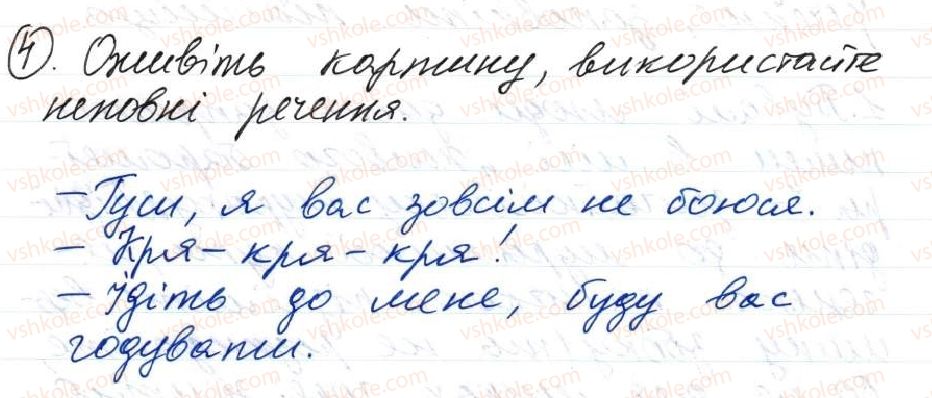 4. Оживіть картину, використайте
неповні речення.
– Гуси, я вас зовсім не боюся.
– Кря – кря – кря!
– Їдіть до мене, буду вас
годувати.